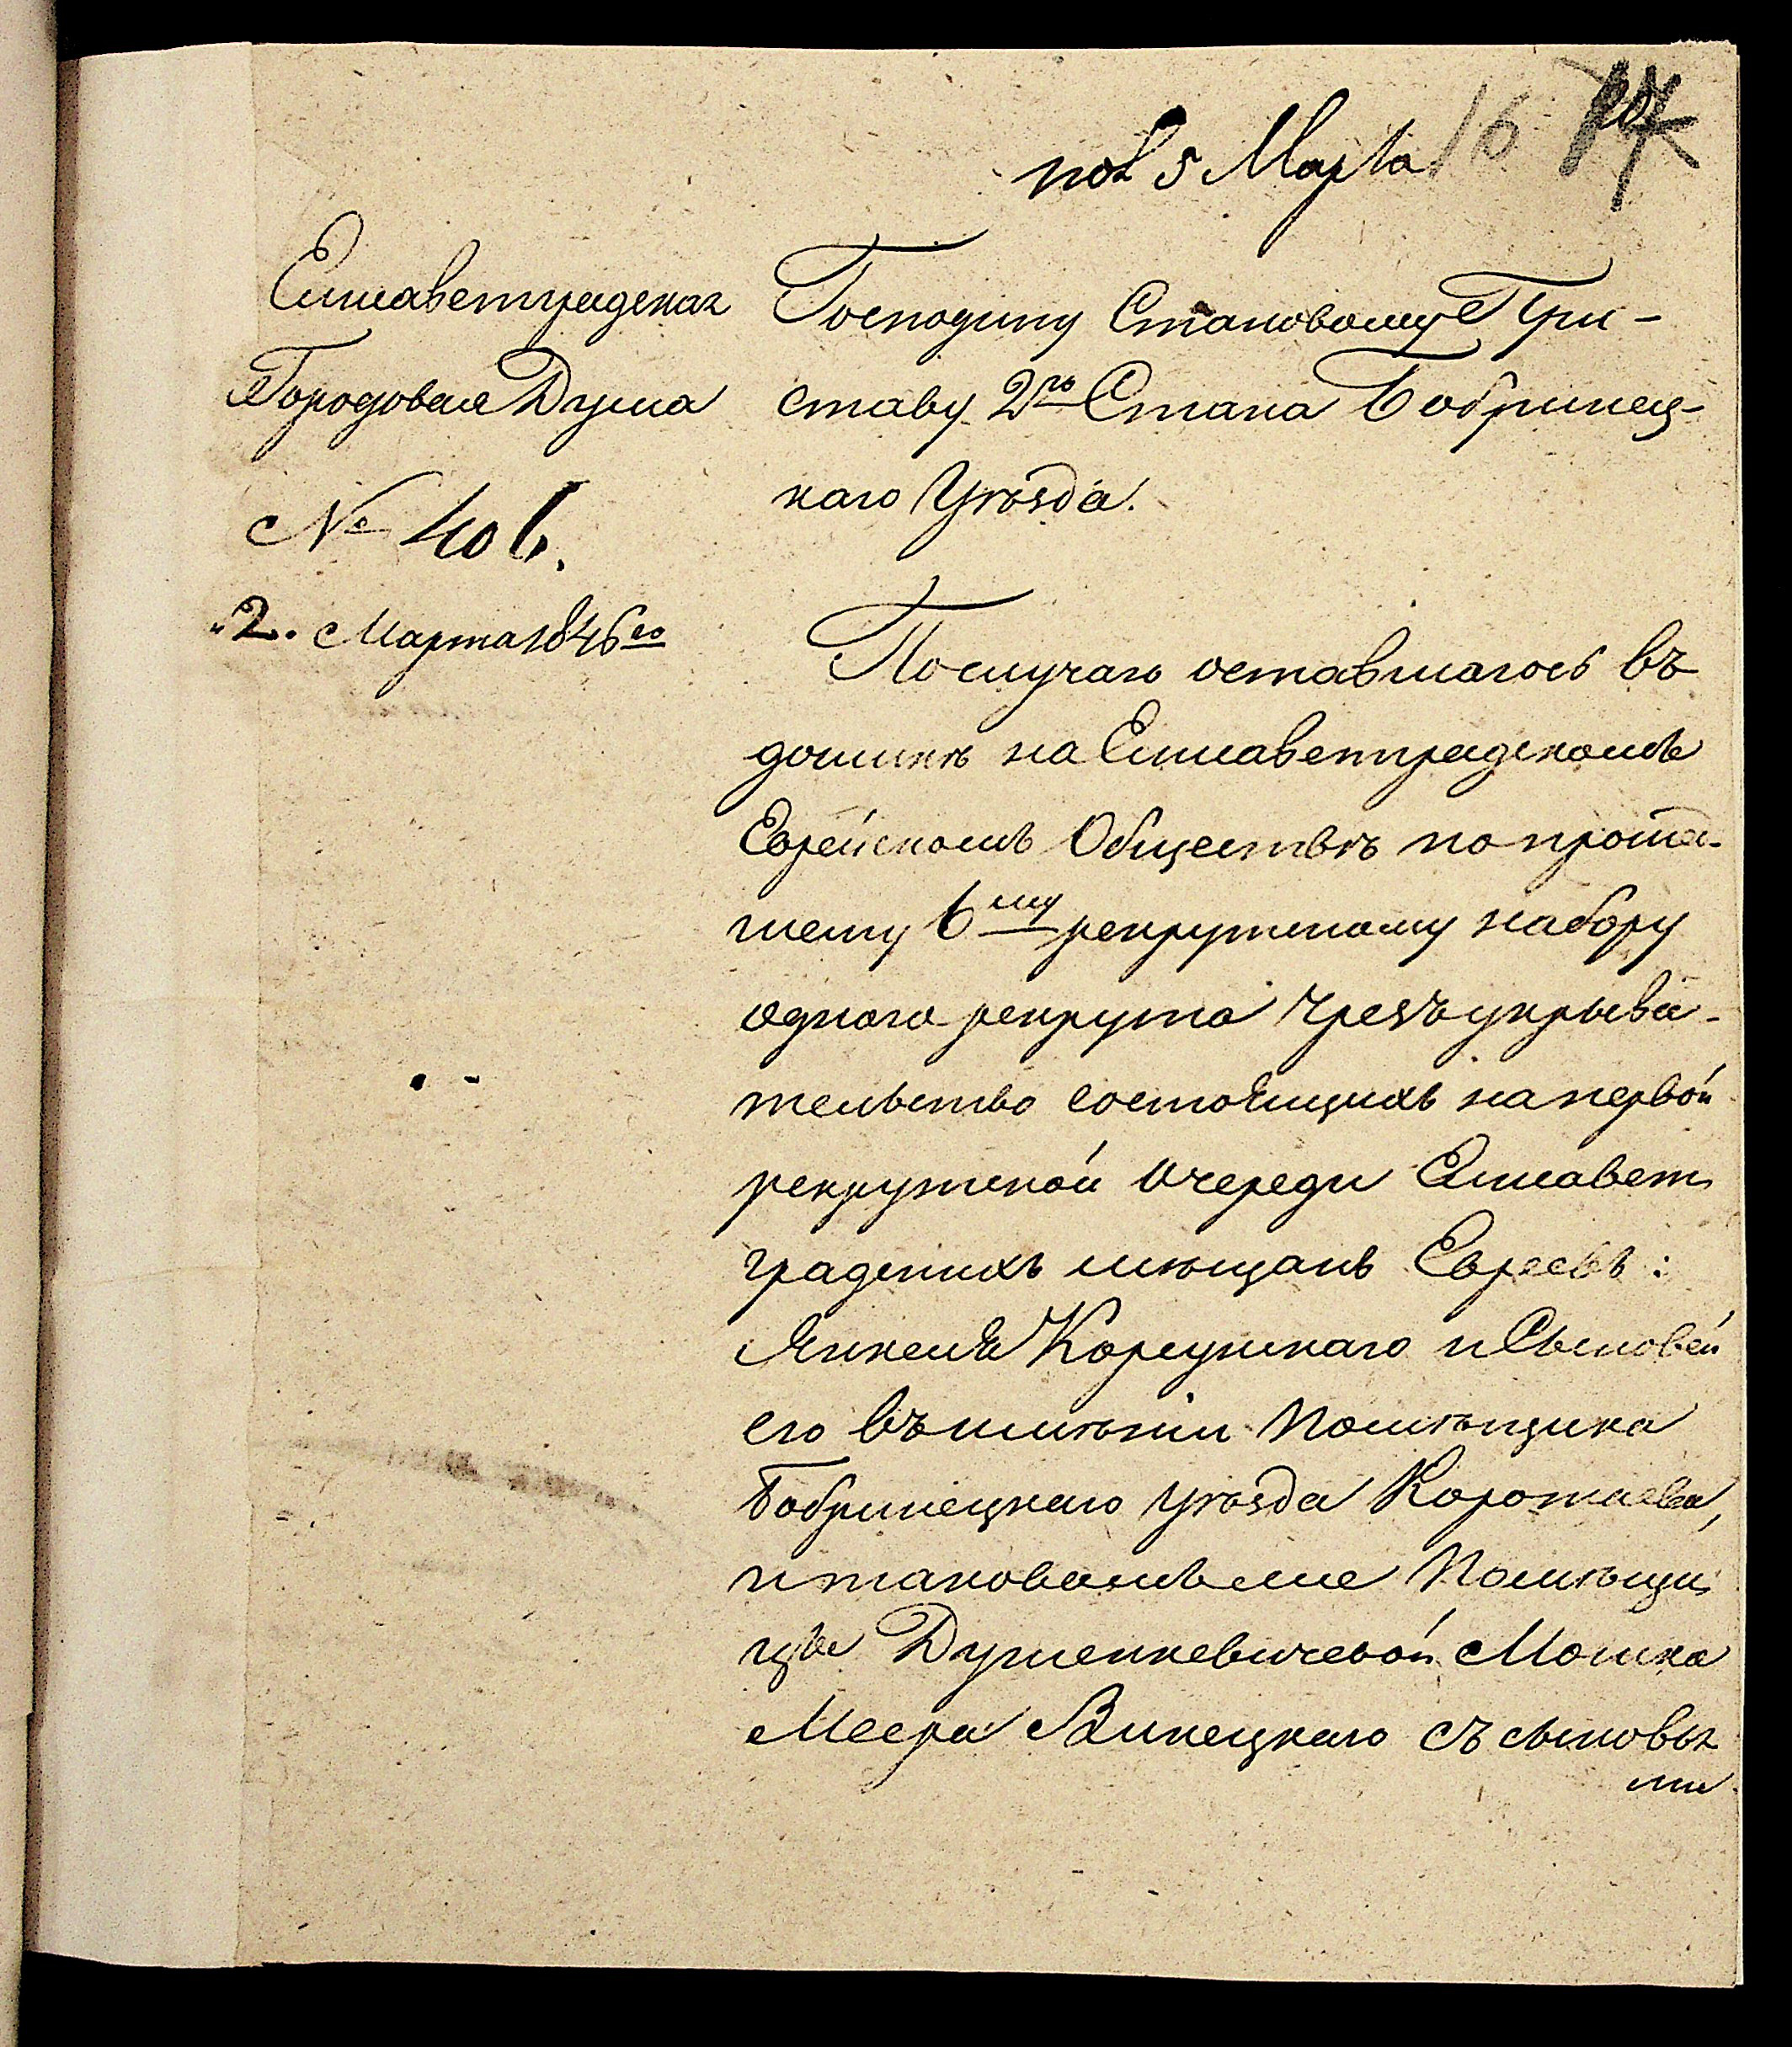 пол 5 Марта
16
Елисаветградская
Городовая Дума
№ 406.
"2. Марта 1846го
Господину Становому При-
ставу 2го Стана Бобринец-
каго Уѣзда.
По случаю оставшагось въ
доимкѣ на Елисаветградскомъ
Еврейскомъ Обществѣ по протек-
шему 6му рекрутскому набору
одного рекрута чрезъ укрыва-
тельство состоящихъ на первой
рекрутской очереди Елисавет
градскихъ мѣщанъ Евреевъ:
Янкеля Корсунскаго и Сыновей
его въ имѣніи Помѣщика
Бобринецкаго уѣзда Коротаева,
и таковомъ же Помѣщи
цы Мошка
Меера Винецкаго съ сыновья
ми